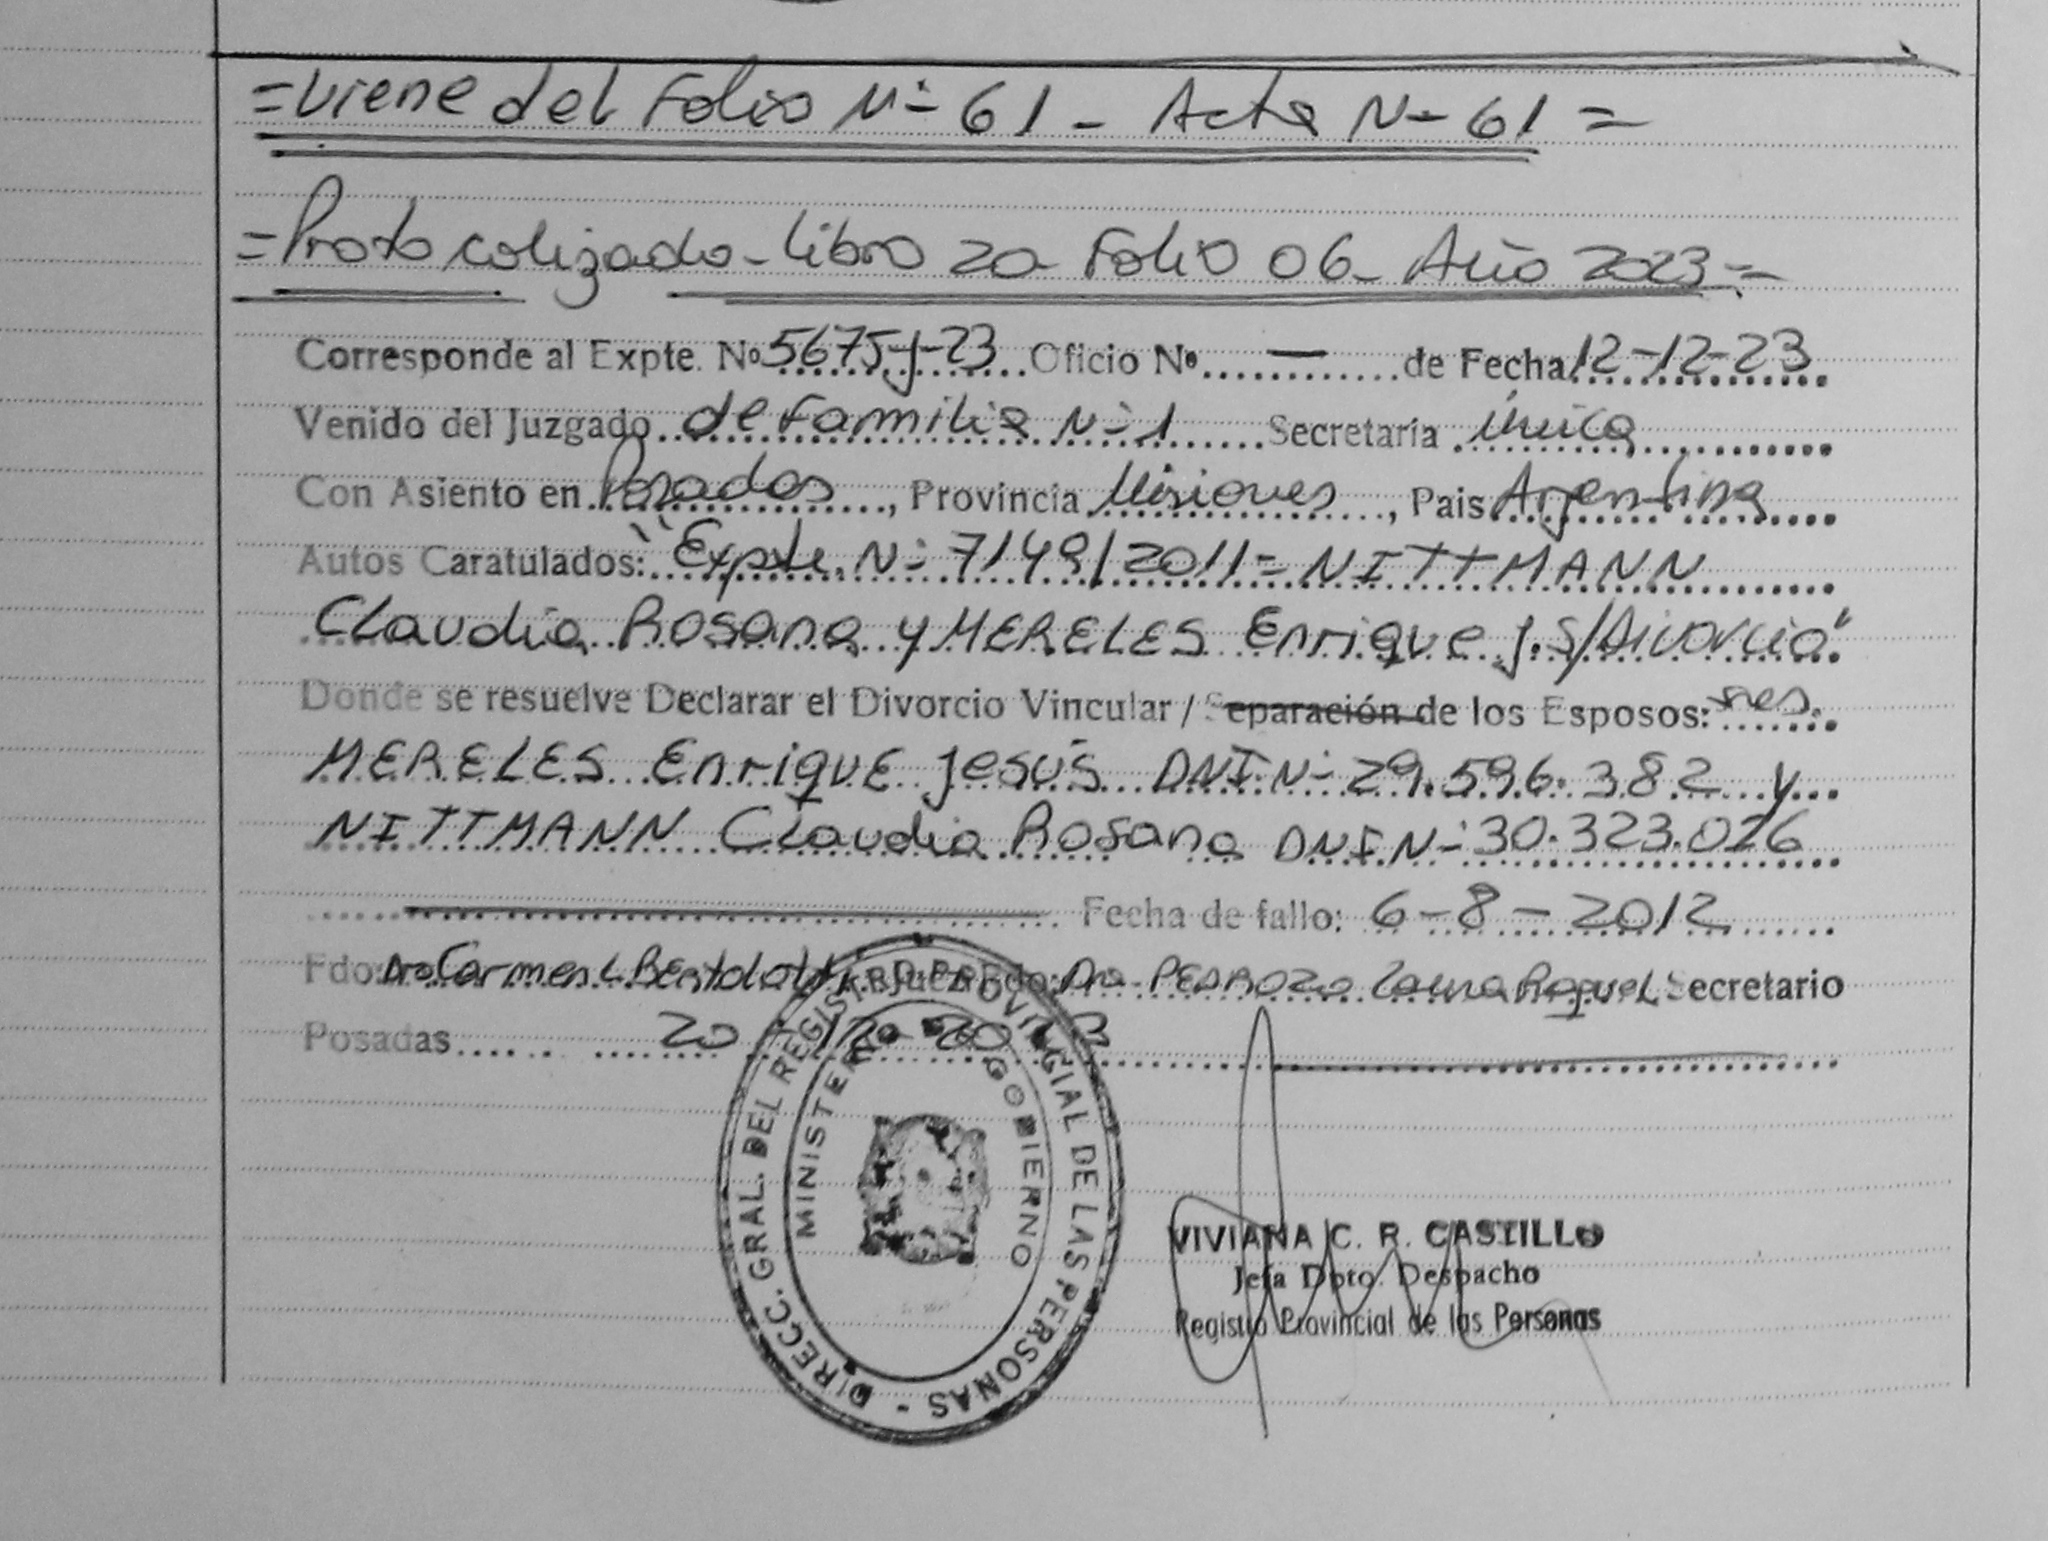 =Viene del Folio Nº 61 - Acta Nº 61=
=Protocolizado - Libro 20 Folio 06 - Año 2023=
Corresponde al Expte. Nº 5675-J-23 Oficio Nº — de Fecha 12-12-23
Venido del Juzgado de Familia Nº 1 Secretaría Única
Con Asiento en Posadas, Provincia Misiones, Pais Argentina
Autos Caratulados: "Expte. Nº 7149/2011 - NITTMANN
Claudia Rosana y MERELES Enrique J. S/Divorcio"
Donde se resuelve Declarar el Divorcio Vincular / Separación de los Esposos:
MERELES Enrique Jesús DNI Nº 29.596.382 y
NITTMANN Claudia Rosana DNI Nº 30.323.026
Fecha de fallo: 6-8-2012
Fdo: Dra Carmen L Juez Fdo: Dra PEDROZO Laura Raquel Secretario
Posadas 20 12 2023
DIRECC. GRAL. DEL REGISTRO PROVINCIAL DE LAS PERSONAS -
MINISTERIO DE GOBIERNO
VIVIANA C. R. CASTILLO
Jefa Dpto. Despacho
Registro Provincial de las Personas